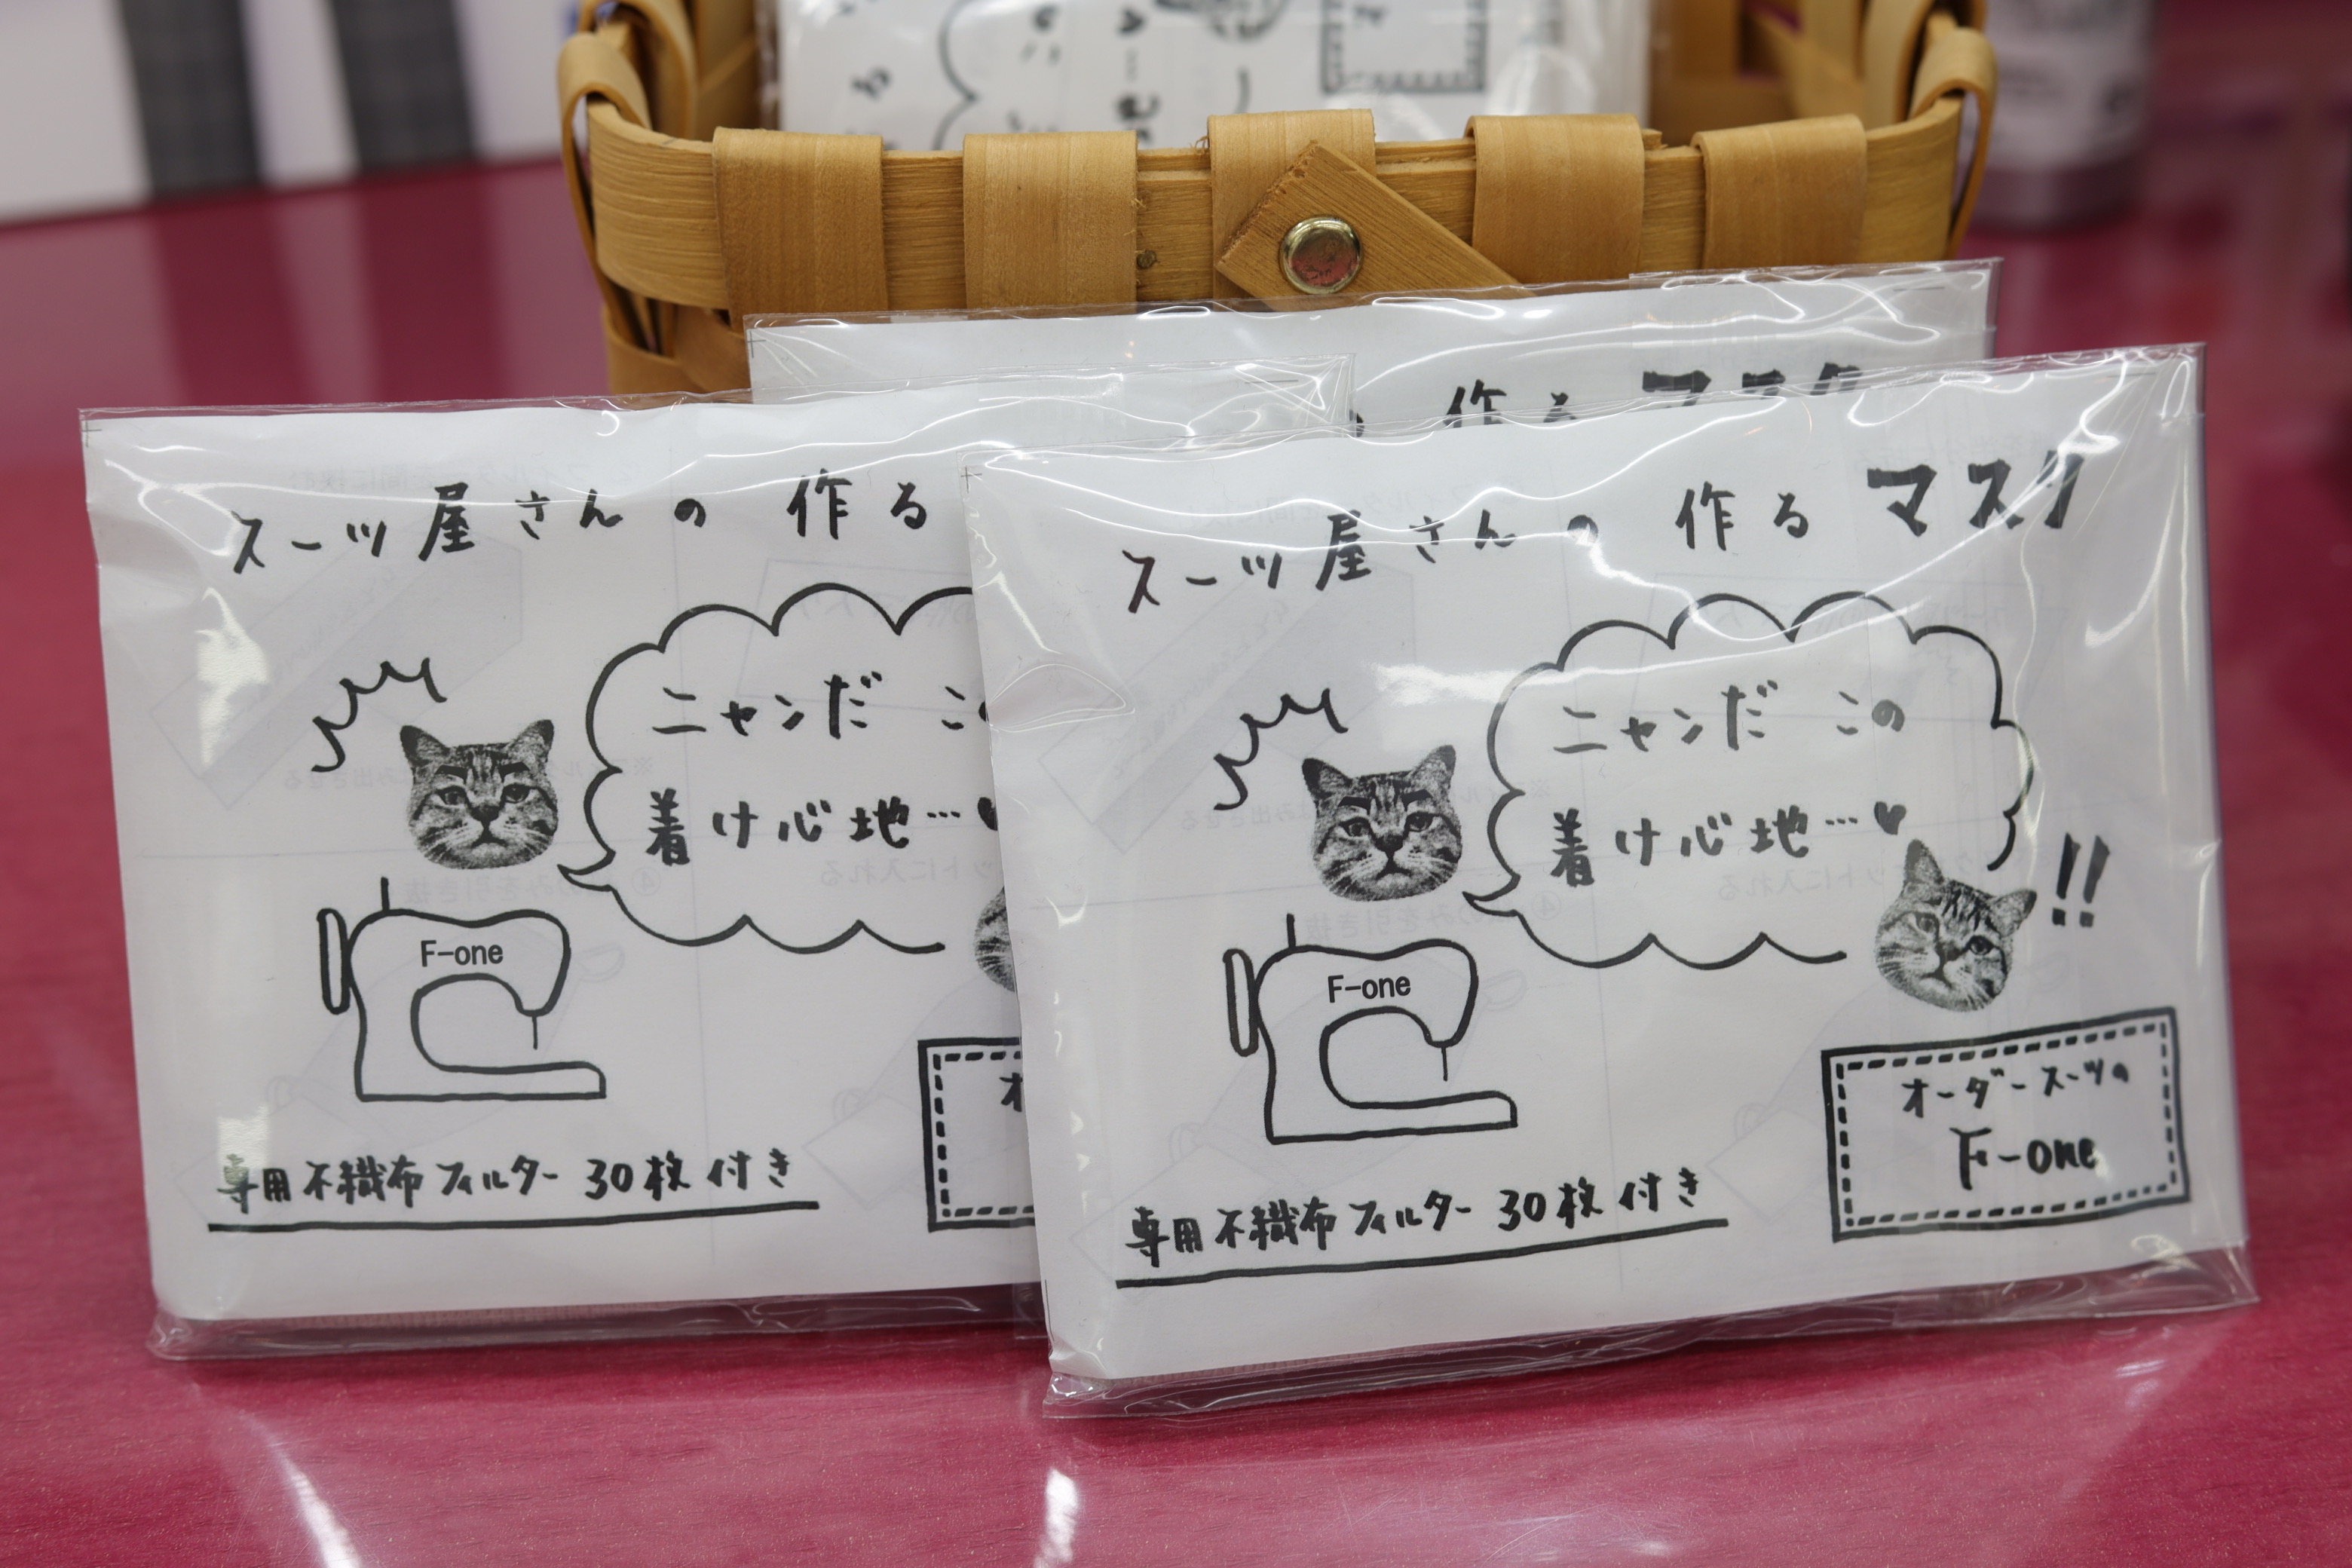 作る マスク
スーツ屋さんの 作る
ニャンだ こ
着け心地…
F-one
専用不織布フィルター 30枚付き
スーツ屋さんの 作る マスク
ニャンだ この
着け心地…♥
!!
F-one
オーダースーツの
F-one
専用不織布フィルター 30枚付き